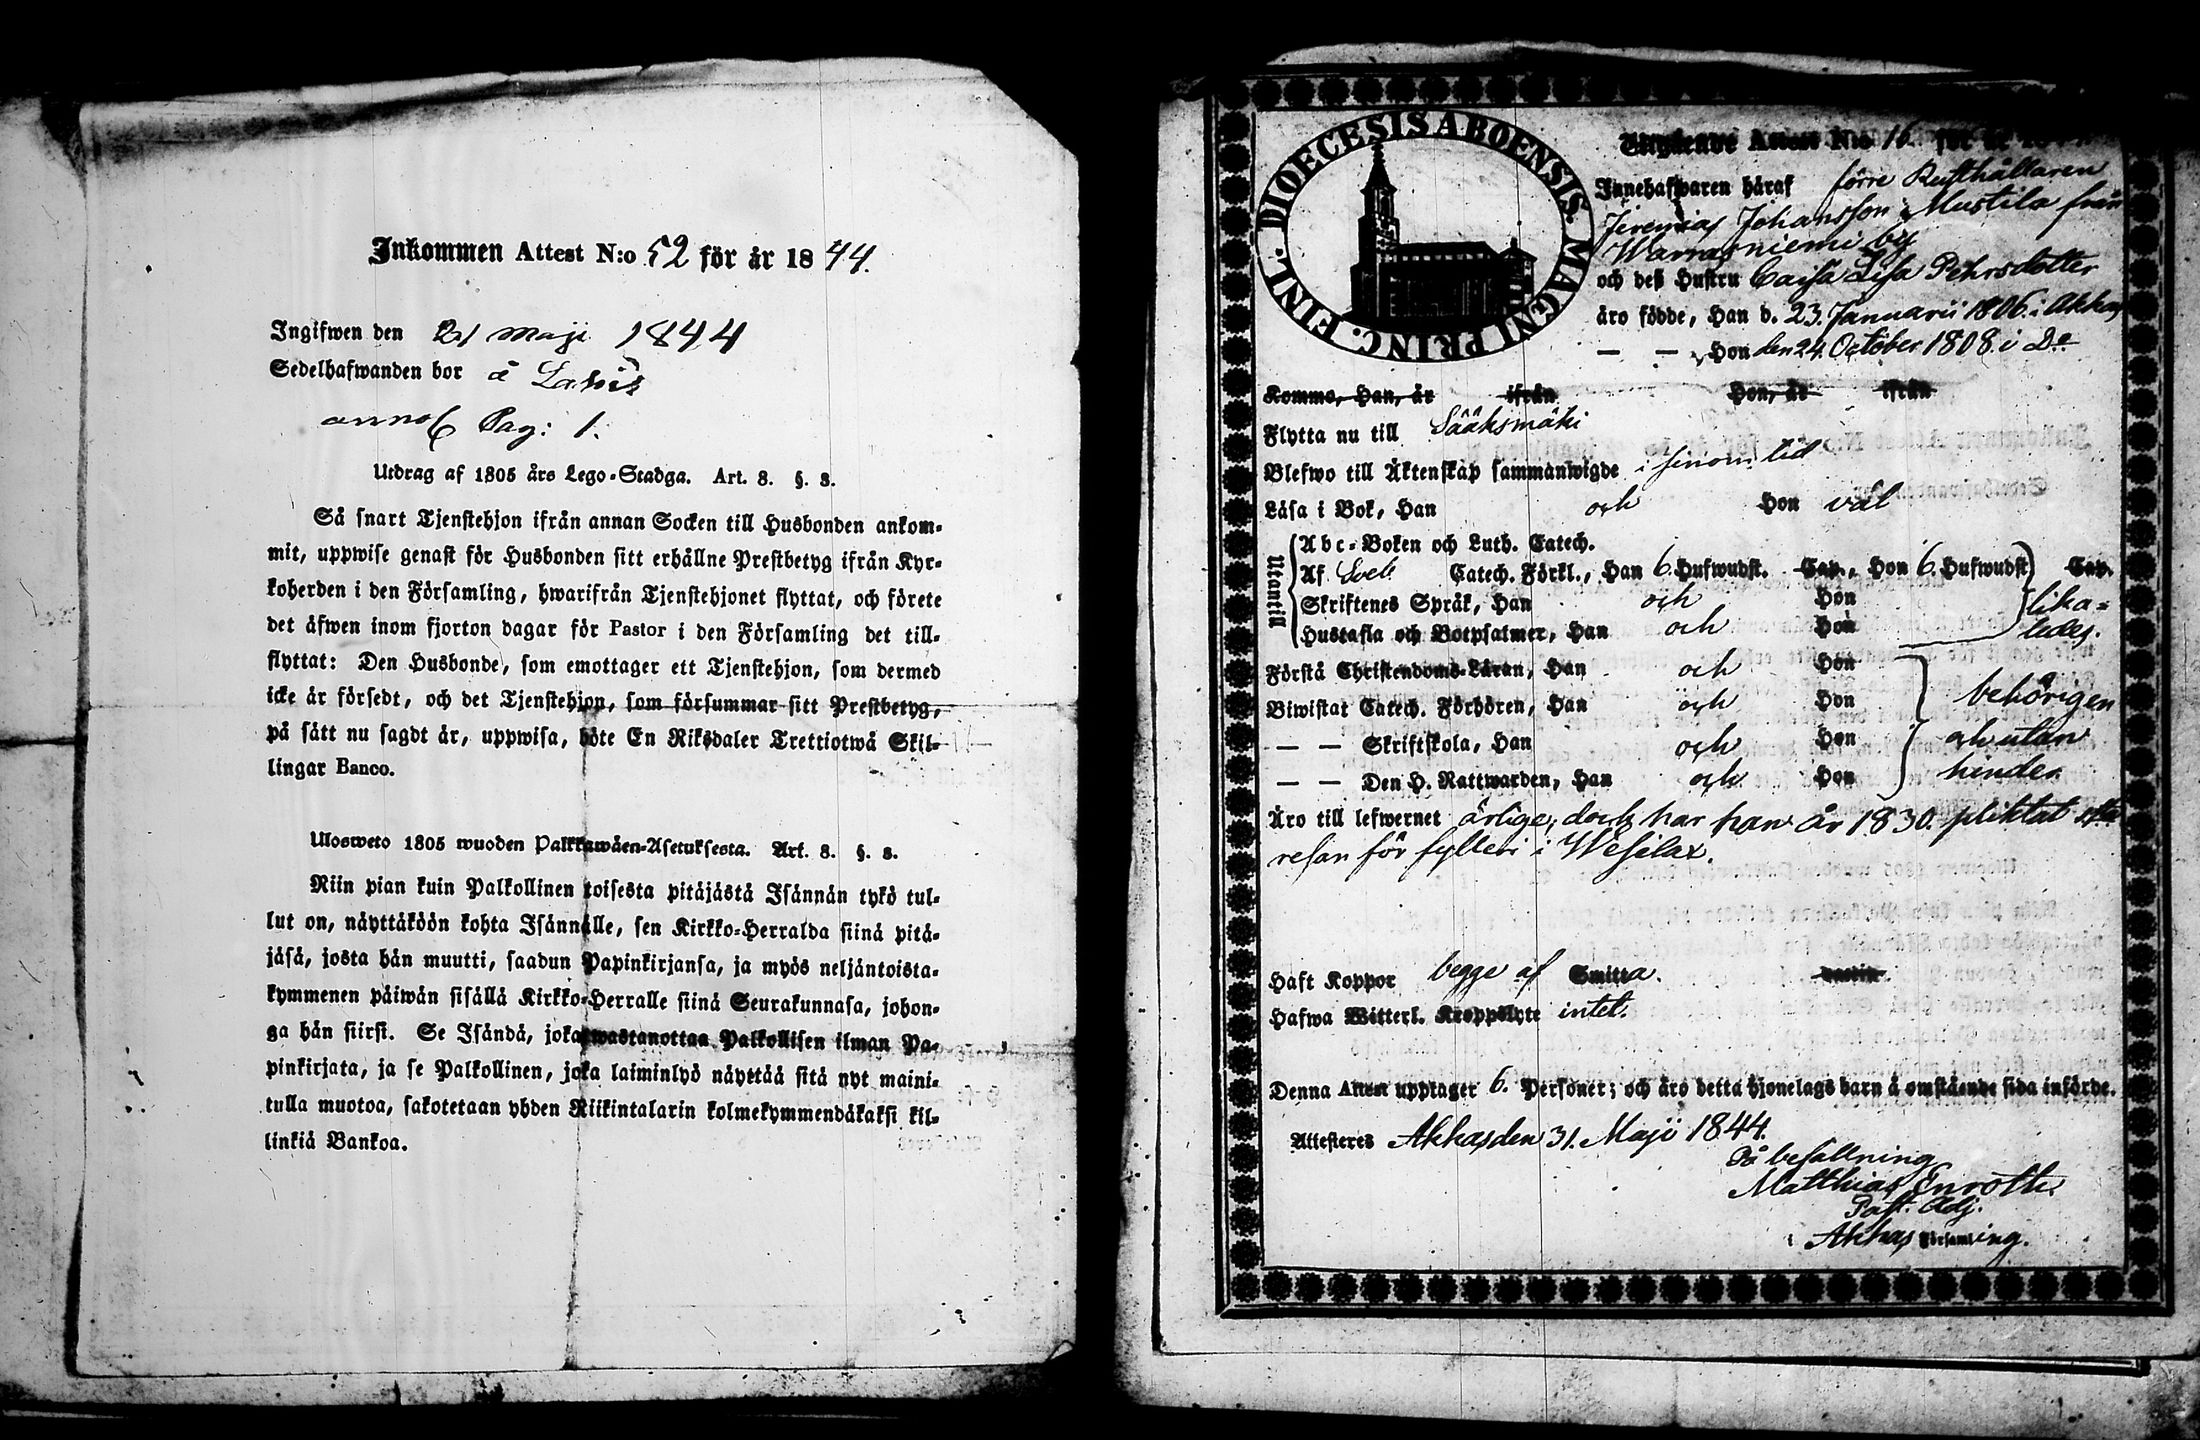 Inkommen Attest N:o 52 för år 1844.
Ingifwen den 21 Maji 1844
Sedelhafwanden bor å
Pag: 1.
Utdrag af 1805 års Lego-Stadga. Art. 8. §. 8.
Så snart Tjenstehjon ifrån annan Socken till Husbonden ankom-
mit, uppwise genast för Husbonden sitt erhållne Prestbetyg ifrån Kyr-
koherden i den Församling, hwarifrån Tjenstehjonet flyttat, och förete
det äfwen inom fjorton dagar för Pastor i den Församling det till-
flyttat: Den Husbonde, som emottager ett Tjenstehjon, som dermed
icke är försedt, och det Tjenstehjon, som försummar sitt Prestbetyg,
på sätt nu sagdt är, uppwisa, böte En Riksdaler Trettiotwå Skil-
lingar Banco.
Ulosweto 1805 wuoden Palkkawäen-Asetuksesta. Art. 8. §. 8.
Niin pian kuin Palkollinen toisesta pitäjästä Isännän tykö tul-
lut on, näyttäköön kohta Isännälle, sen Kirkko-Herralda siinä pitä-
jäsä, josta hän muutti, saadun Papinkirjansa, ja myös neljäntoista-
kymmenen päiwän sisällä Kirkko-Herralle siinä Seurakunnasa, johon-
ga hän siirsi. Se Isändä, joka wastanottaa Palkollisen ilman Pa-
pinkirjata, ja se Palkollinen, joka laiminlyö näyttää sitä nyt maini-
tulla muotoa, sakotetaan yhden Riikintalarin kolmekymmendäkaksi kil-
linkiä Bankoa.
DIOECESIS ABOENSIS. MAGNI PRINC. FINL.
Utgående Attest N:o 16 för år
Innehafwaren häraf förre Rusthållaren
Jeremias Johansson Mustila från
Warrasniemi by
och deß Hustru Caisa Lisa Pehrsdotter
äro födde, Han d. 23. Januarii 1806. i Akkas
— — Hon den 24. October 1808. i Do
Kommo, Han, år ifrån Hon, år ifrån
Flytta nu till Sääksmäki
Blefwo till Äktenskap sammanwigde i sinom tid
Läsa i Bok, Han och Hon väl
Utantill
Abc-Boken och Luth. Catech.
Af Sveb. Catech. Förkl., Han 6. Hufwudst. Cap., Hon 6. Hufwudst Cap.
Skriftenes Språk, Han och Hon lika-
Hustafla och Botpsalmer, Han och Hon ledes.
Förstå Christendoms-Läran, Han och Hon
Biwistat Catech. Förhören, Han och Hon behörigen
— — Skriftskola, Han och Hon och utan
— — Den H. Nattwarden, Han och Hon hinder
Äro till lefwernet ärlige, dock har han år 1830. pliktat 1sta
resan för fylleri i Wesilax.
Haft Koppor begge af Smitta.
Hafwa Witterl. Kroppslyte intet.
Denna Attest upptager 6. Personer; och äro detta hjonelags barn å omstående sida införde.
Attesteres Akkas den 31. Maji 1844.
På befallning
Matthias Enroth.
Past. Adj.
i Akkas Församling.